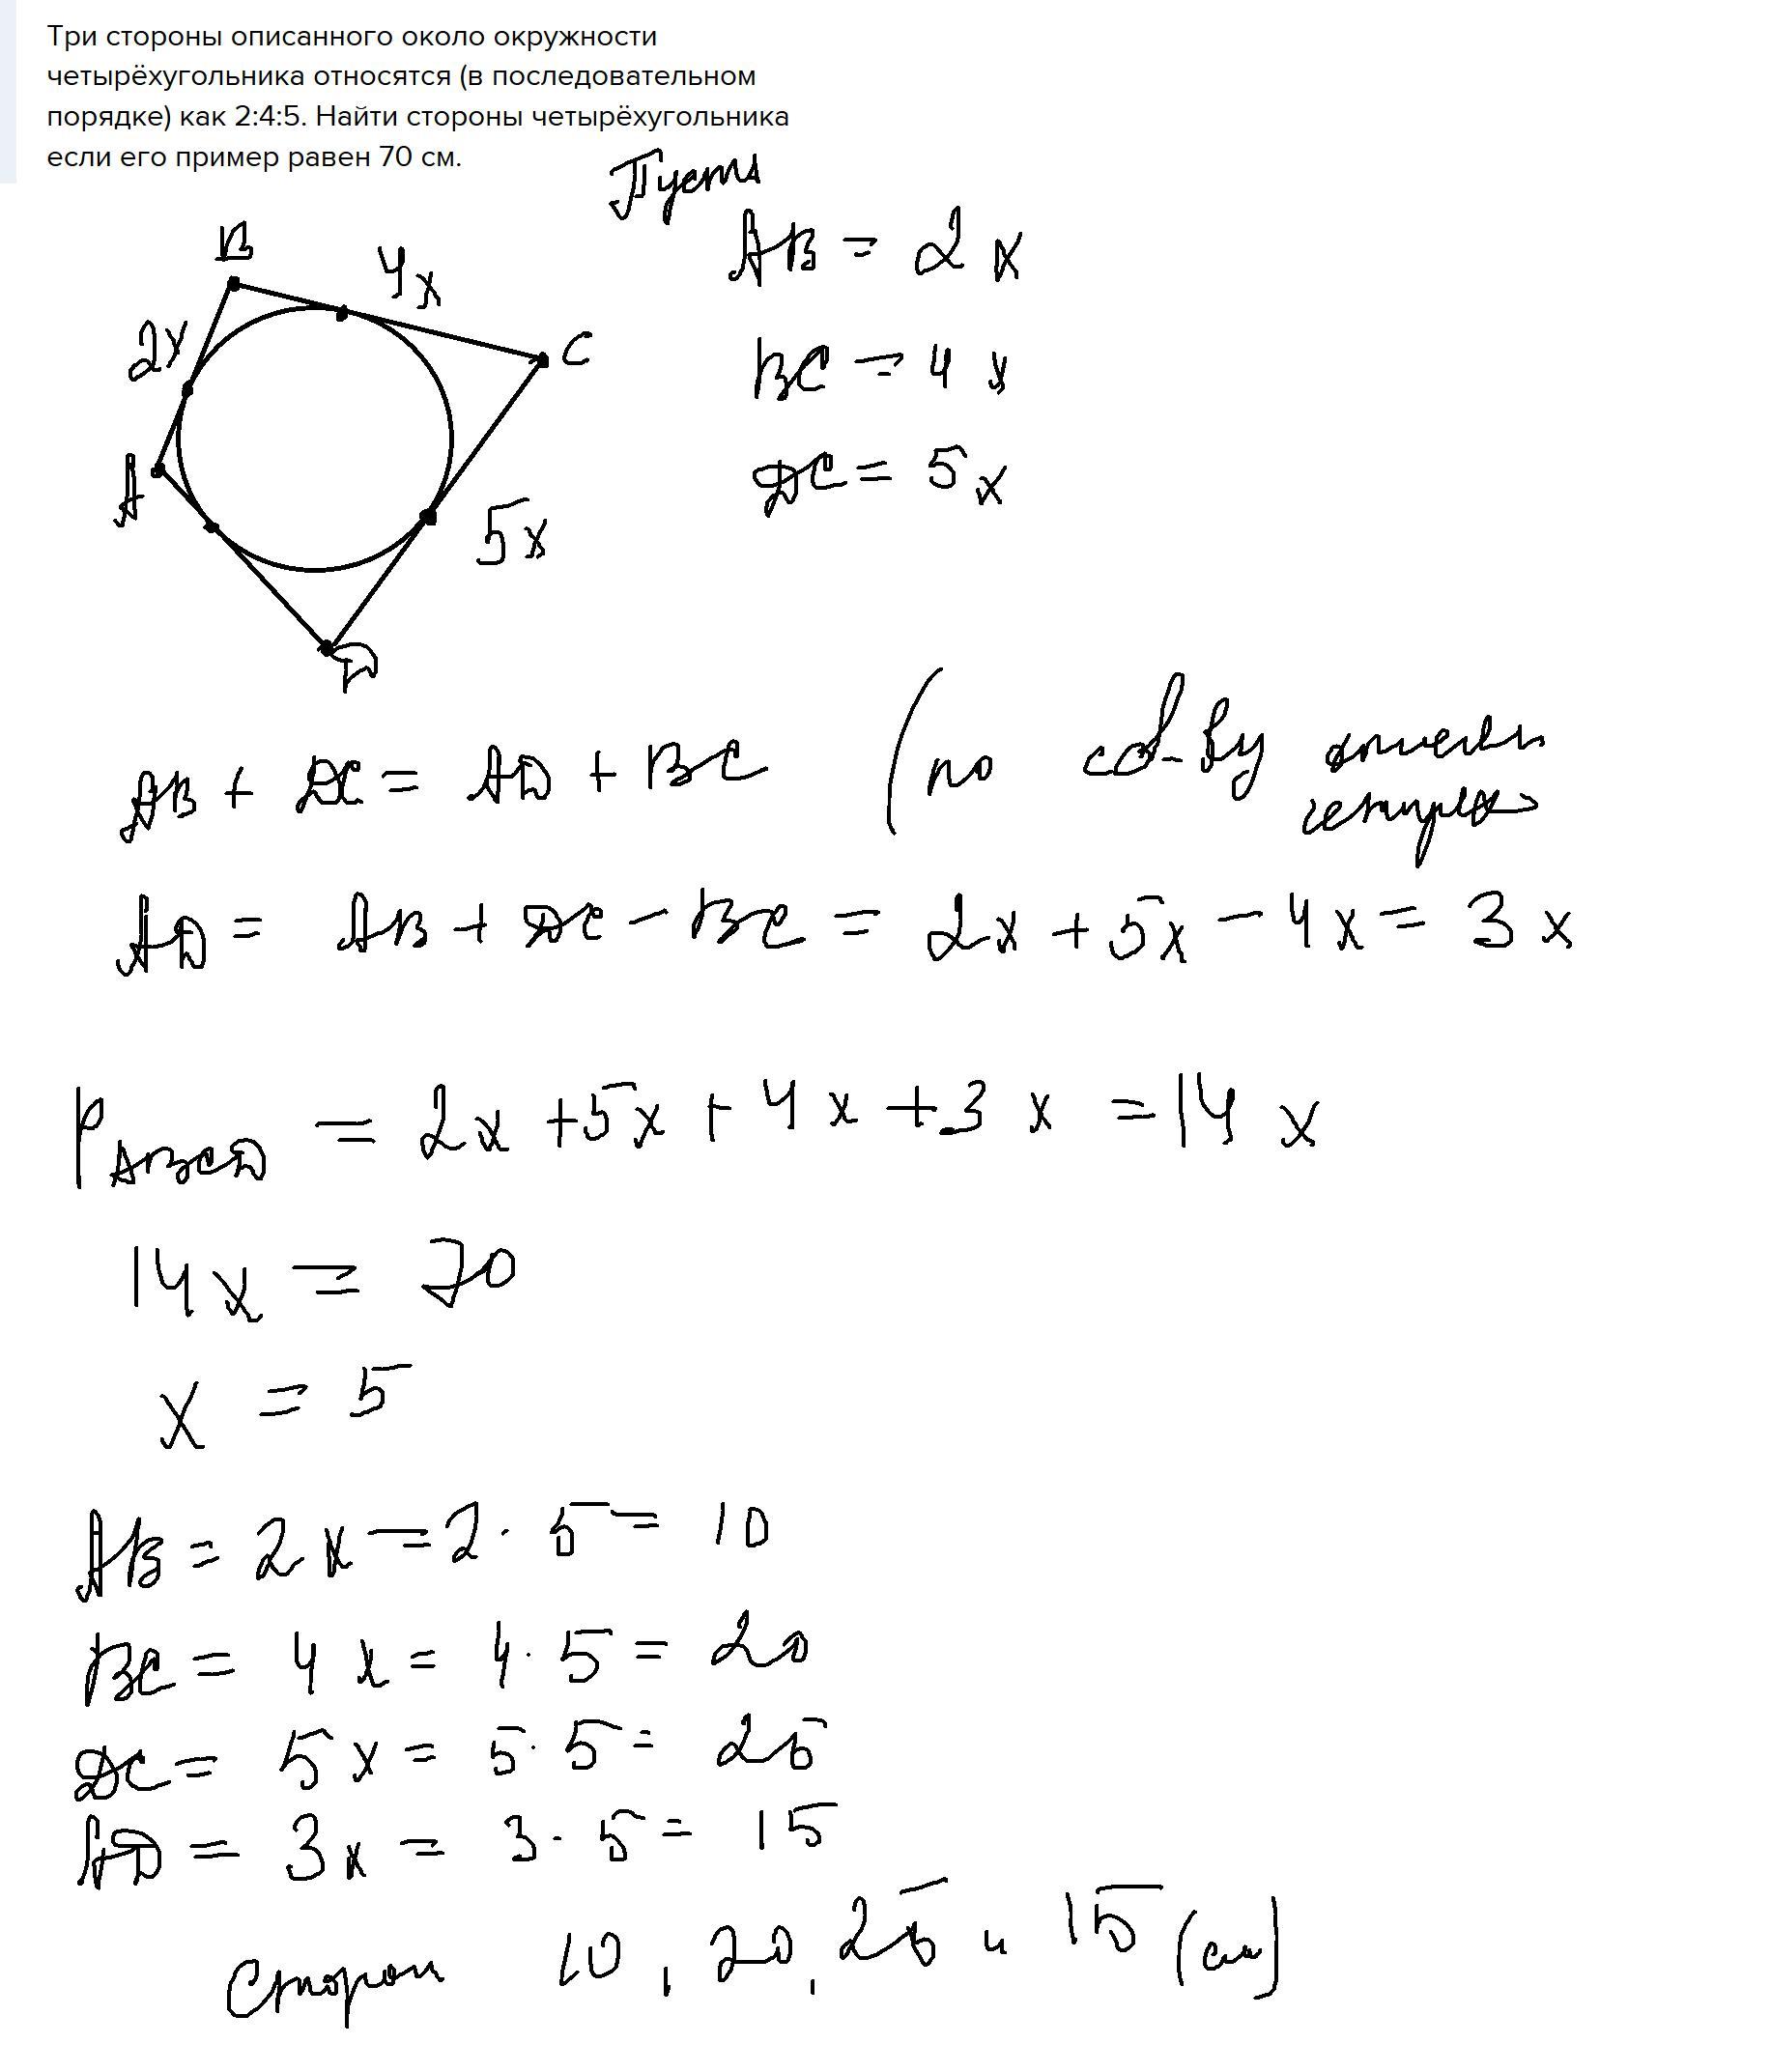 Три стороны описанного около окружности
четырёхугольника относятся (в последовательном
порядке) как 2:4:5. Найти стороны четырёхугольника
если его пример равен 70 см.
Пусть
AB = 2x
BC = 4x
DC = 5x
B
4x
C
2x
A
5x
D
AB + DC = AD + BC (по св-ву
AD = AB + DC - BC = 2x + 5x - 4x = 3x
P ABCD = 2x + 5x + 4x + 3x = 14x
14x = 70
x = 5
AB = 2x = 2 · 5 = 10
BC = 4x = 4 · 5 = 20
DC = 5x = 5 · 5 = 25
AD = 3x = 3 · 5 = 15
10, 20, 25 и 15 (см)